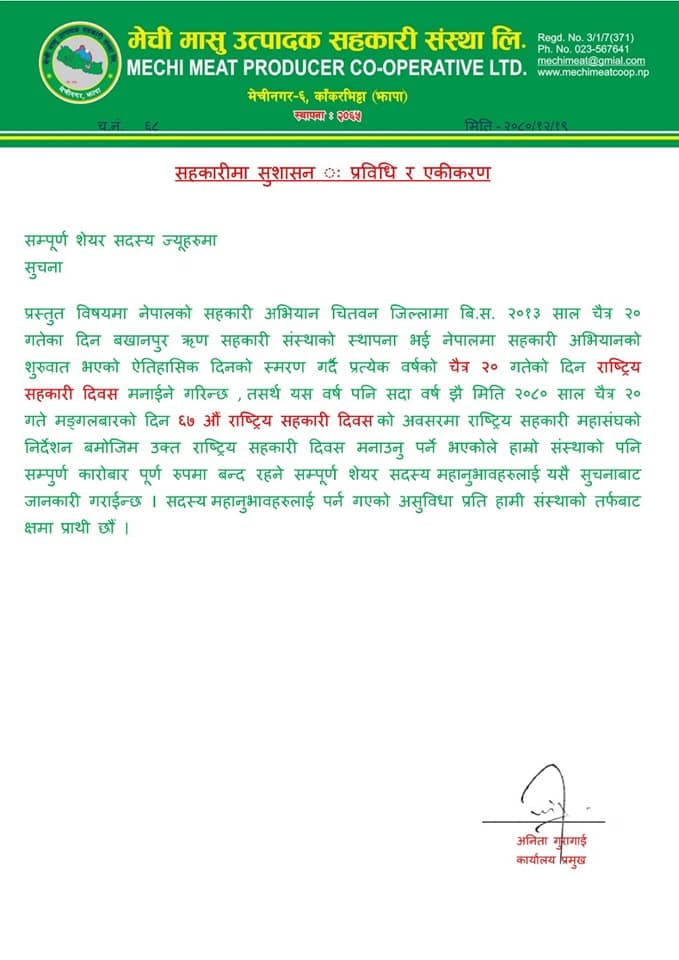 मेची मासु उत्पादक सहकारी संस्था लि.
MECHI MEAT PRODUCER CO-OPERATIVE LTD.
Regd. No. 3/1/7(371)
Ph. No. 023-567641
mechimeat@gmial.com
www.mechimeatcoop.np
मेचीनगर-६, काँकरभिट्टा (झापा)
स्थापना : २०६५
च.नं. ६८
मिति - २०८०/१२/१९
सहकारीमा सुशासन ः प्रविधि र एकीकरण
सम्पूर्ण शेयर सदस्य ज्यूहरुमा
सुचना
प्रस्तुत विषयमा नेपालको सहकारी अभियान चितवन जिल्लामा बि.स. २०१३ साल चैत्र २०
गतेका दिन बखानपुर ऋण सहकारी संस्थाको स्थापना भई नेपालमा सहकारी अभियानको
शुरुवात भएको ऐतिहासिक दिनको स्मरण गर्दै प्रत्येक वर्षको चैत्र २० गतेको दिन राष्ट्रिय
सहकारी दिवस मनाईने गरिन्छ , तसर्थ यस वर्ष पनि सदा वर्ष झै मिति २०८० साल चैत्र २०
गते मङ्गलबारको दिन ६७ औं राष्ट्रिय सहकारी दिवस को अवसरमा राष्ट्रिय सहकारी महासंघको
निर्देशन बमोजिम उक्त राष्ट्रिय सहकारी दिवस मनाउनु पर्ने भएकोले हाम्रो संस्थाको पनि
सम्पुर्ण कारोबार पूर्ण रुपमा बन्द रहने सम्पूर्ण शेयर सदस्य महानुभावहरुलाई यसै सुचनाबाट
जानकारी गराईन्छ । सदस्य महानुभावहरुलाई पर्न गएको असुविधा प्रति हामी संस्थाको तर्फबाट
क्षमा प्रार्थी छौं ।
अनिता गुरागाई
कार्यालय प्रमुख